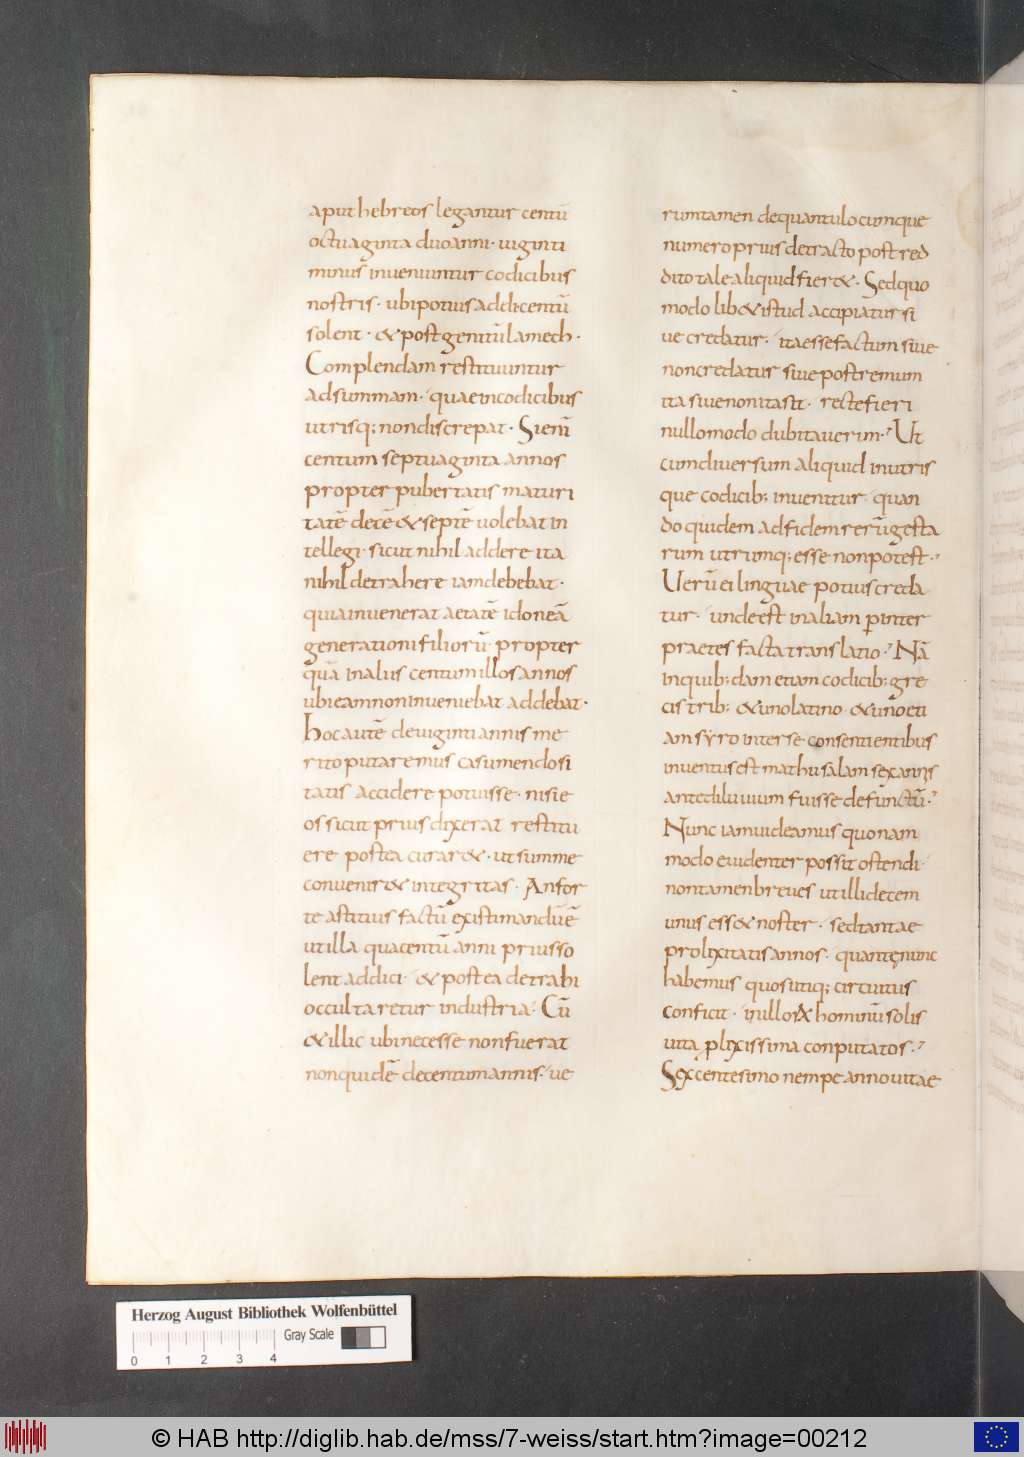 aput hebreos legantur centū
octuaginta duo anni · uiginti
minus inueniuntur codicibus
nostris · ubi potius addi centū
solent · & post genitū lamech ·
Complendam restituuntur
ad summam · quae in codicibus
utrisq; non discrepat · Si enī
centum septuaginta annos
propter pubertatis maturi
tatē decē & septē uolebat in
tellegi · sicut nihil addere ita
nihil detrahere iam debebat ·
quia inuenerat aetatē idoneā
generationi filiorū propter
quā in aliis centum illos annos
ubi eam non inueniebat addebat ·
hoc autē de uiginti annis me
rito putaremus casu mendosi
tatis accidere potuisse · nisi e
os sicut prius dixerat restitu
ere postea curar& · ut summe
conuenir& integritas · An for
te astitius factū existimandū ē
ut illa qua centū anni prius so
lent addici · & postea detrahi
occultaretur industria · Cū
& illic ubi necesse non fuerat
non quidē de centum annis · ue
rumtamen de quantulo cumque
numero prius detracto post red
dito tale aliquid fier& · Sed quo
modo lib& istud accipiatur si
ue credatur · ita esse factum siue
non credatur siue postremum
ita siue non ita sit · recte fieri
nullo modo dubitauerim · Ut
cum diuersum aliquid in utris
que codicib; inuenitur · quan
do quidem ad fidem rerū gesta
rum utrumq; esse non potest ·
Uerū ei linguae potius creda
tur · unde est in aliam ꝑ inter
praetes facta translatio · Nā
in quib;dam etiam codicib; gre
cis trib; & uno latino & uno eti
am sẏro inter se consentientibus
inuentus est mathusalam sex annis
ante diluuium fuisse defunctū ·
Nunc iam uideamus quonam
modo euidenter possit ostendi ·
non tamen breues ut illi decem
unus ess& noster · sed tantae
prolixitatis annos · quante nunc
habemus quos utiq; circuitus
conficit · in illorꝝ hominū solis
uita ꝓlixissima conputatos ·
Sexcentesimo nempe anno uitae
Herzog August Bibliothek Wolfenbüttel
Gray Scale
0 1 2 3 4
© HAB http://diglib.hab.de/mss/7-weiss/start.htm?image=00212